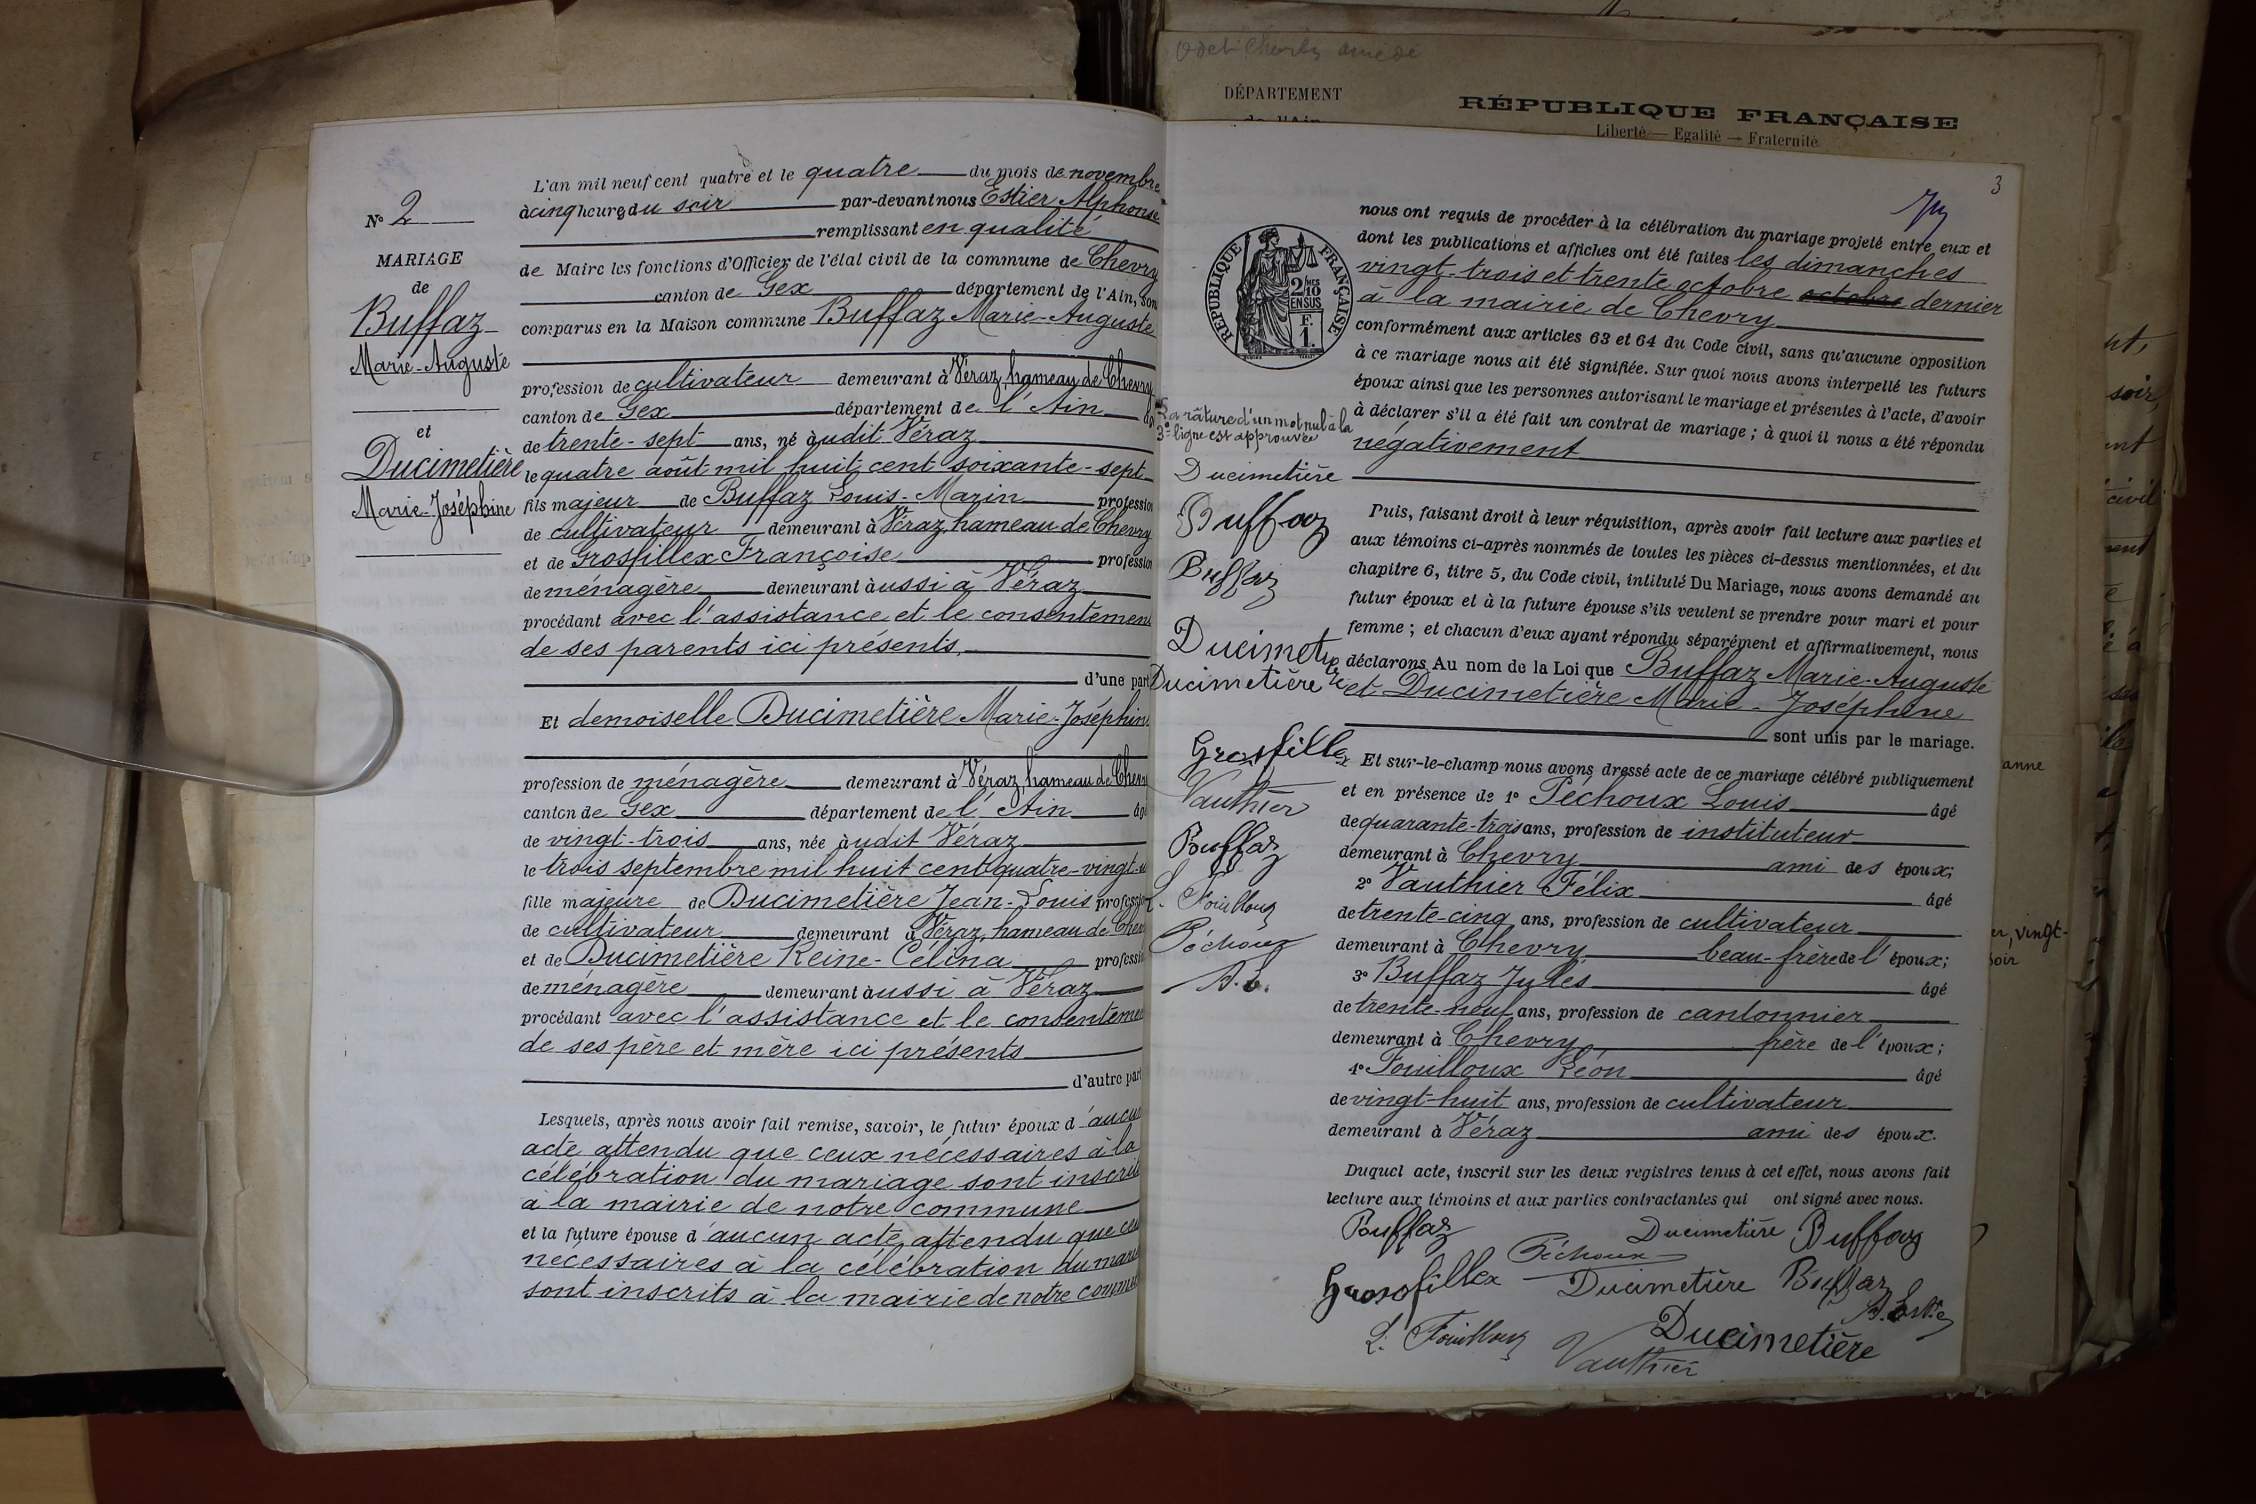 N° 2
MARIAGE
de
Buffaz
Marie-Auguste
et
Ducimetière
Marie-Joséphine
L'an mil neuf cent quatre et le quatre du mois de novembre
à cinq heures du soir par-devant nous Estier Alphonse
remplissant en qualité
de Maire les fonctions d'Officier de l'état civil de la commune de Chevry
canton de Gex département de l'Ain, sont
comparus en la Maison commune Buffaz Marie-Auguste
profession de cultivateur demeurant à Véraz, hameau de Chevry
canton de Gex département de l'Ain
de trente-sept ans, né àudit Véraz
le quatre août mil huit cent soixante-sept
fils majeur de Buffaz Louis-Marin profession
de cultivateur demeurant à Véraz, hameau de Chevry
et de Grosfillex Françoise profession
de ménagère demeurant àussi à Véraz
procédant avec l'assistance et le consentemen
de ses parents ici présents.
d'une part
Et demoiselle Ducimetière Marie-Joséphin
profession de ménagère demeurant à Véraz, hameau de Chevr
canton de Gex département de l'Ain âgé
de vingt-trois ans, née àudit Véraz
le trois septembre mil huit cent quatre-vingt-u
fille majeure de Ducimetière Jean-Louis professio
de cultivateur demeurant à Véraz, hameau de Chev
et de Ducimetière Reine-Célina professio
de ménagère demeurant àussi à Véraz
procédant avec l'assistance et le consenteme
de ses père et mère ici présents
d'autre part
Lesquels, après nous avoir fait remise, savoir, le futur époux d'aucu
acte attendu que ceux nécessaires à la
célébration du mariage sont inscrits
à la mairie de notre commune
et la future épouse d'aucun acte, attendu que ce
nécessaires à la célébration du maria
sont inscrits à la mairie de notre commu
DÉPARTEMENT
de l'Ain
RÉPUBLIQUE FRANÇAISE
Liberté — Egalité — Fraternité
3
RÉPUBLIQUE FRANÇAISE
2/10
EN SUS
F.
1.
nous ont requis de procéder à la célébration du mariage projeté entre eux et
dont les publications et affiches ont été faites les dimanches
vingt-trois et trente octobre octobre dernier
à la mairie de Chevry
conformément aux articles 63 et 64 du Code civil, sans qu'aucune opposition
à ce mariage nous ait été signifiée. Sur quoi nous avons interpellé les futurs
époux ainsi que les personnes autorisant le mariage et présentes à l'acte, d'avoir
à déclarer s'il a été fait un contrat de mariage ; à quoi il nous a été répondu
négativement
La râture d'un mot nul à la
3e ligne est approuvée
Ducimetière
Buffaz
Buffaz
Ducimetière
Ducimetière
Grosfillex
Vauthier
Buffaz
L. Fouilloux
Péchoux
A. E.
Puis, faisant droit à leur réquisition, après avoir fait lecture aux parties et
aux témoins ci-après nommés de toutes les pièces ci-dessus mentionnées, et du
chapitre 6, titre 5, du Code civil, intitulé Du Mariage, nous avons demandé au
futur époux et à la future épouse s'ils veulent se prendre pour mari et pour
femme ; et chacun d'eux ayant répondu séparément et affirmativement, nous
déclarons Au nom de la Loi que Buffaz Marie-Auguste
et Ducimetière Marie-Joséphine
sont unis par le mariage.
Et sur-le-champ nous avons dressé acte de ce mariage célébré publiquement
et en présence de 1° Péchoux Louis âgé
de quarante-trois ans, profession de instituteur
demeurant à Chevry ami des époux;
2° Vauthier Félix âgé
de trente-cinq ans, profession de cultivateur
demeurant à Chevry beau-frère de l'époux;
3° Buffaz Jules âgé
de trente-neuf ans, profession de cantonnier
demeurant à Chevry frère de l'époux;
4° Fouilloux Léon âgé
de vingt-huit ans, profession de cultivateur
demeurant à Véraz ami des époux.
Duquel acte, inscrit sur les deux registres tenus à cet effet, nous avons fait
lecture aux témoins et aux parties contractantes qui ont signé avec nous.
Buffaz Ducimetière Buffaz
Péchoux
Grosfillex Ducimetière Buffaz
A. Estier
L. Fouilloux Vauthier Ducimetière
soir,
civil
anne
vingt-
soir